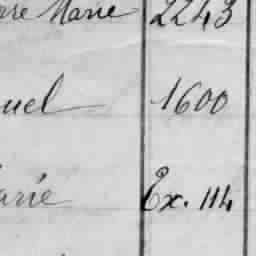 re Marie 2243
uel 1600
arie Ex. 114